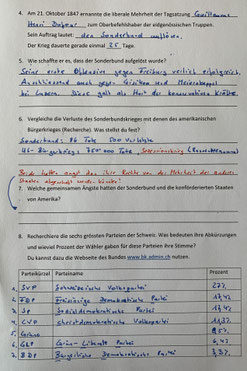 4. Am 21. Oktober 1847 ernannte die liberale Mehrheit der Tagsatzung Guillaume
Henri Dufour zum Oberbefehlshaber der eidgenössischen Truppen.
Sein Auftrag lautet: den Sonderbund auflösen.
Der Krieg dauerte gerade einmal 25 Tage.
5. Wie schaffte er es, dass der Sonderbund aufgelöst wurde?
Seine erste Offensive gegen Freiburg verlief erfolgreich.
Anschliessend auch gegen
bei Luzern. Diese galt als Hort der konservativen Kräfte.
6. Vergleiche die Verluste des Sonderbundskrieges mit denen des amerikanischen
Bürgerkrieges (Recherche). Was stellst du fest?
Sonderbund: 86 Tote 500 Verletzte
US-Bürgerkrieg: 750'000 Tote, Sezessionskrieg
Beide hatten Angst das ihre Rechte von der Mehrheit der anderen
Staaten abgeschafft werden könnte!
7. Welche gemeinsamen Ängste hatten der Sonderbund und die konföderierten Staaten
von Amerika?
8. Recherchiere die sechs grössten Parteien der Schweiz. Was bedeuten ihre Abkürzungen
und wieviel Prozent der Wähler gaben für diese Parteien ihre Stimme?
Du kannst dazu die Webseite des Bundes www.bk.admin.ch nutzen.
Parteikürzel Parteiname Prozent
1. SVP Schweizerische Volkspartei 27%
2. FDP Freisinnige Demokratische Partei
3. SP Sozialdemokratische Partei
4. CVP Christdemokratische Volkspartei
5. Grüne
6. GLP Grün-Liberale Partei
7. BDP Bürgerliche Demokratische Partei